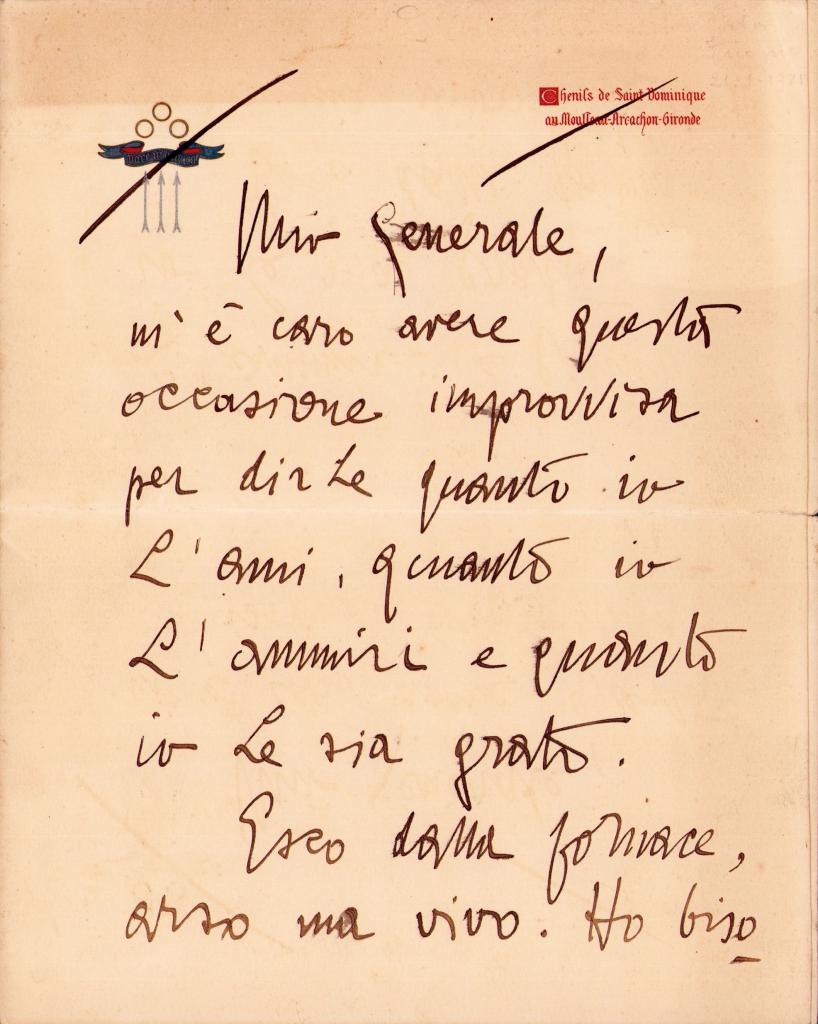 Chenils de Saint Dominique
au Moulleau-Arcachon-Gironde
Mio Generale,
m'è caro avere questa
occasione improvvisa
per dirLe quanto io
L'ami, quanto io
L'ammiri e quanto
io Le sia grato.
Esco dalla fornace,
arso ma vivo. Ho biso